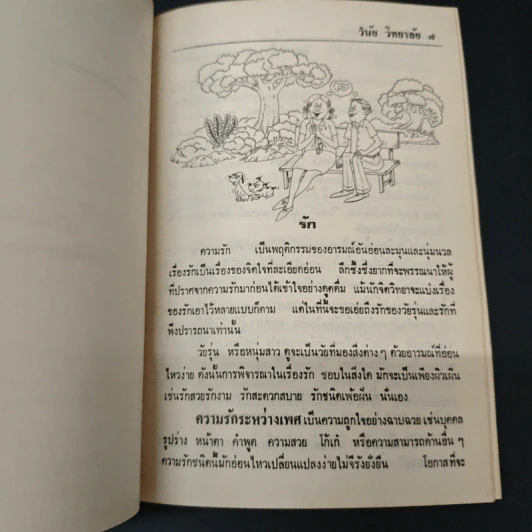 วินัย วิทยาลัย ๗
รัก
ความรัก เป็นพฤติกรรมของอารมณ์อันอ่อนละมุนและนุ่มนวล
เรื่องรักเป็นเรื่องของจิตใจที่ละเอียดอ่อน ลึกซึ้งซึ่งยากที่จะพรรณนาให้ผู้
ที่ปราศจากความรักมาก่อนได้เข้าใจอย่างดูดดื่ม แม้นักจิตวิทยาจะแบ่งเรื่อง
ของรักเอาไว้หลายแบบก็ตาม แต่ในที่นี้จะขอเอ่ยถึงรักของวัยรุ่นและรักที่
พึงปรารถนาเท่านั้น
วัยรุ่น หรือหนุ่มสาว ดูจะเป็นวัยที่มองสิ่งต่าง ๆ ด้วยอารมณ์ที่อ่อน
ไหวง่าย ดังนั้นการพิจารณาในเรื่องรัก ชอบในสิ่งใด มักจะเป็นเพียงผิวเผิน
เช่นรักสวยรักงาม รักสะดวกสบาย รักชนิดเพ้อฝัน นั่นเอง
ความรักระหว่างเพศ เป็นความถูกใจอย่างฉาบฉวย เช่นบุคคล
รูปร่าง หน้าตา คำพูด ความสวย โก้เก๋ หรือความสามารถด้านอื่น ๆ
ความรักชนิดนี้มักอ่อนไหวเปลี่ยนแปลงง่ายไม่จีรังยั่งยืน โอกาสที่จะ